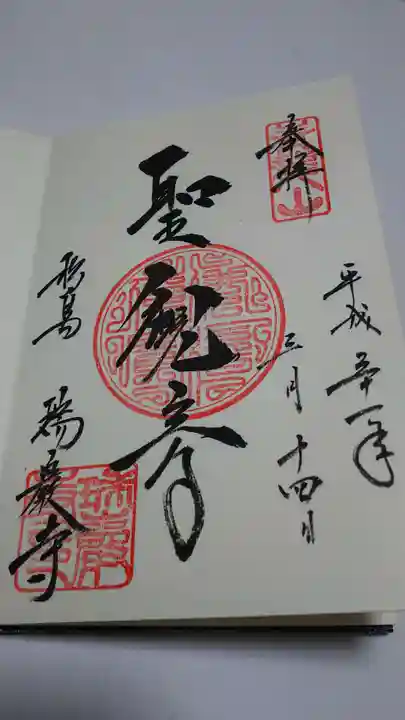 奉拝
平成三十一年
三月十四日
聖観音
松島 瑞巖寺